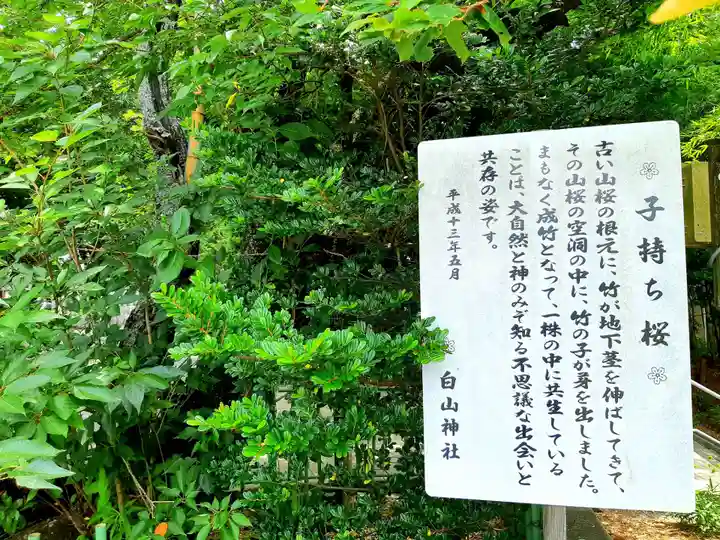 子持ち桜
古い山桜の根元に、竹が地下茎を伸ばしてきて、
その山桜の空洞の中に、竹の子が身を出しました。
まもなく成竹となって、一株の中に共生している
ことは、大自然と神のみぞ知る不思議な出会いと
共存の姿です。
平成十三年五月
白山神社